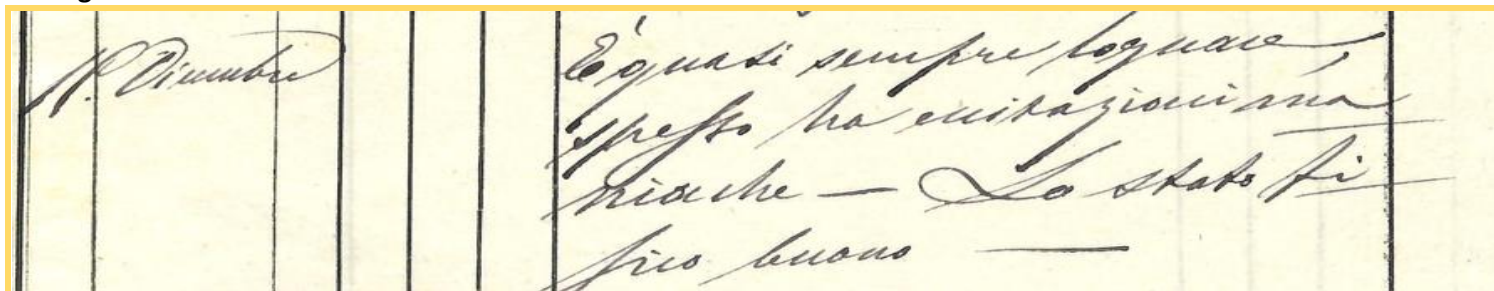 11. Dicembre
È quasi sempre loquace,
spesso ha eccitazioni ma
niache — Lo stato fi
sico buono —